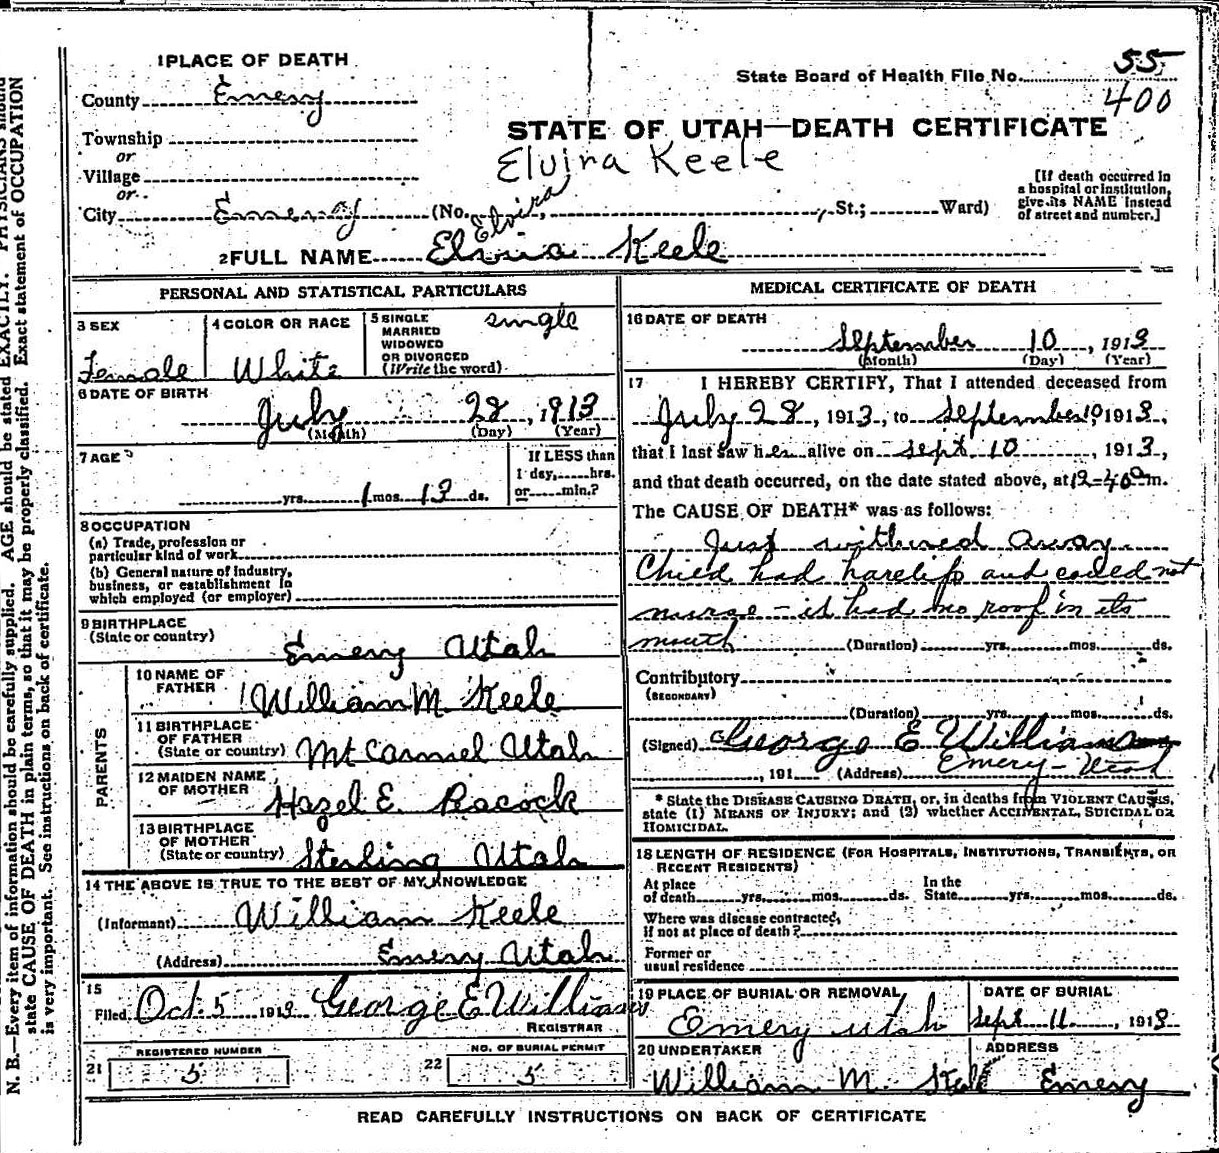 1 PLACE OF DEATH
County Emery
Township
or
Village
or
City Emery (No. , St.; Ward)
State Board of Health File No. 55
400
STATE OF UTAH—DEATH CERTIFICATE
Elvira Keele
[If death occurred in
a hospital or institution,
give its NAME instead
of street and number.]
Elvira
2 FULL NAME Elvira Keele
PERSONAL AND STATISTICAL PARTICULARS
3 SEX
Female
4 COLOR OR RACE
White
5 SINGLE
MARRIED
WIDOWED
OR DIVORCED
(Write the word)
single
6 DATE OF BIRTH
July 28, 1913
(Month) (Day) (Year)
7 AGE
yrs. 1 mos. 13 ds.
If LESS than
1 day, hrs.
or min.?
8 OCCUPATION
(a) Trade, profession or
particular kind of work
(b) General nature of industry,
business, or establishment in
which employed (or employer)
9 BIRTHPLACE
(State or country)
Emery Utah
PARENTS
10 NAME OF
FATHER
William M Keele
11 BIRTHPLACE
OF FATHER
(State or country) Mt Carmel Utah
12 MAIDEN NAME
OF MOTHER
Hazel E. Peacock
13 BIRTHPLACE
OF MOTHER
(State or country) Sterling Utah
14 THE ABOVE IS TRUE TO THE BEST OF MY KNOWLEDGE
(Informant) William Keele
(Address) Emery Utah
15
Filed Oct. 5 1913 George E Williams
REGISTRAR
REGISTERED NUMBER
21 5
NO. OF BURIAL PERMIT
22 5
MEDICAL CERTIFICATE OF DEATH
16 DATE OF DEATH
September 10, 1913
(Month) (Day) (Year)
17 I HEREBY CERTIFY, That I attended deceased from
July 28, 1913, to September 10, 1913,
that I last saw her alive on Sept. 10, 1913,
and that death occurred, on the date stated above, at 12=40 m.
The CAUSE OF DEATH* was as follows:
Just withered away
Child had harelip and could not
nurse - it had no roof in its
mouth (Duration) yrs. mos. ds.
Contributory
(SECONDARY)
(Duration) yrs. mos. ds.
(Signed) George E Williams
, 191 (Address) Emery - Utah
* State the DISEASE CAUSING DEATH, or, in deaths from VIOLENT CAUSES,
state (1) MEANS OF INJURY; and (2) whether ACCIDENTAL, SUICIDAL OR
HOMICIDAL.
18 LENGTH OF RESIDENCE (FOR HOSPITALS, INSTITUTIONS, TRANSIENTS, OR
RECENT RESIDENTS)
At place In the
of death yrs. mos. ds. State yrs. mos. ds.
Where was disease contracted,
if not at place of death?
Former or
usual residence
19 PLACE OF BURIAL OR REMOVAL
Emery Utah
DATE OF BURIAL
Sept 11, 1913
20 UNDERTAKER
William M.
ADDRESS
Emery
READ CAREFULLY INSTRUCTIONS ON BACK OF CERTIFICATE
N. B.—Every item of information should be carefully supplied. AGE should be stated EXACTLY. PHYSICIANS should
state CAUSE OF DEATH in plain terms, so that it may be properly classified. Exact statement of OCCUPATION
is very important. See instructions on back of certificate.